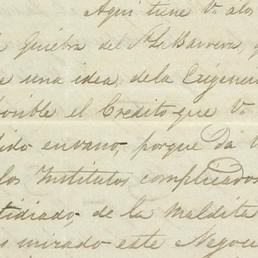 Aqui tiene V. a los
Quiebra del Sr. Barrera,
e una idea dela Exigenci
onible el Credito que V.
dido envano, porque da V
los Institutos complicados
tidiado, de la maldita
s mirado este Negoci